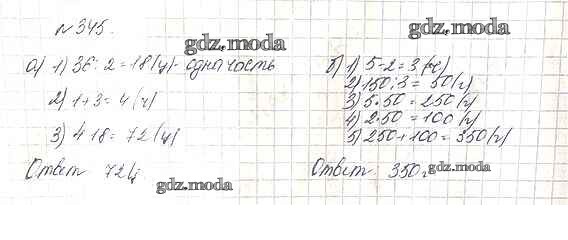 №345.
gdz.moda
gdz.moda
а) 1) 36 : 2 = 18 (ц) - одна часть
2) 1+3 = 4 (ч)
3) 4·18 = 72 (ц)
Ответ 72 ц
gdz.moda
б) 1) 5-2 = 3 (ч)
2) 150 : 3 = 50 (г)
3) 5·50 = 250 (г)
4) 2·50 = 100 (г)
5) 250+100 = 350 (г)
Ответ 350 г
gdz.moda